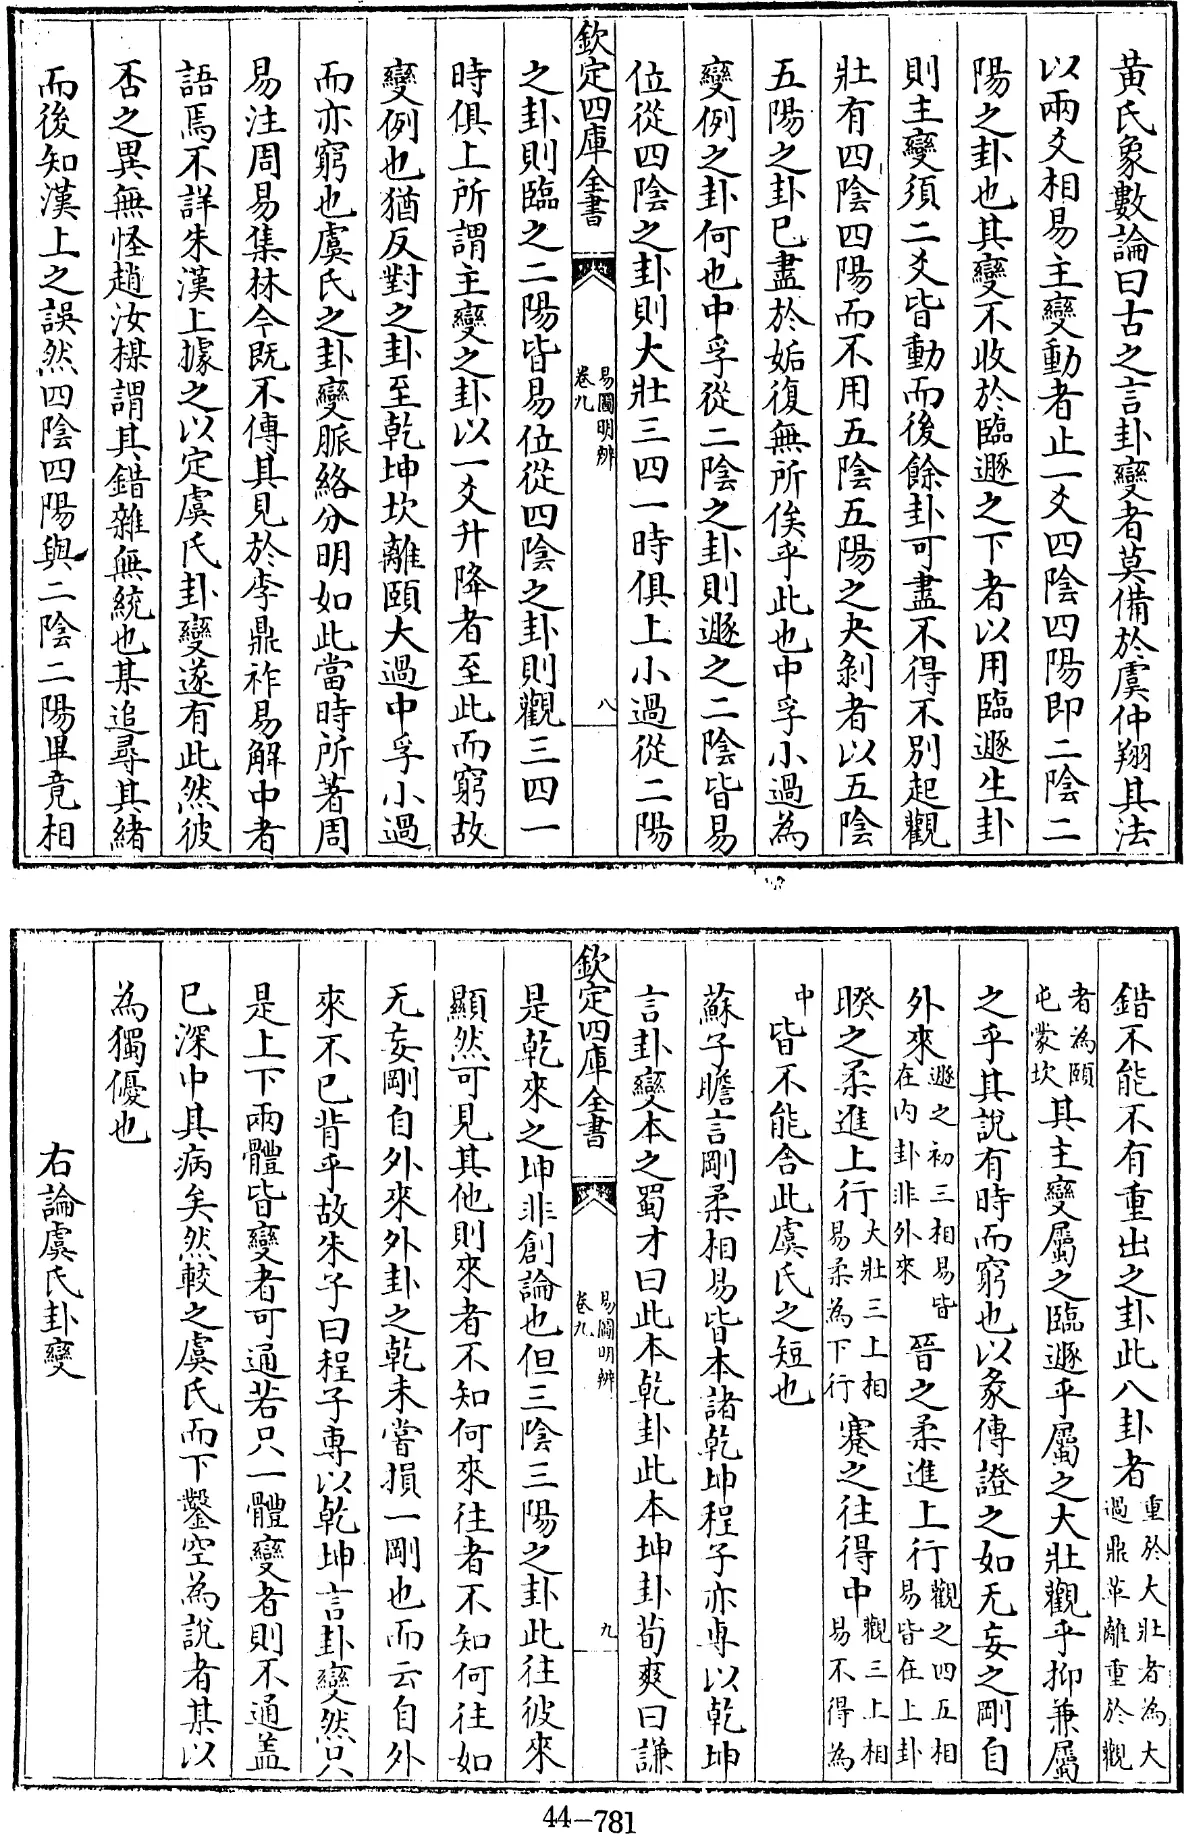 黃氏象數論曰古之言卦變者莫備於虞仲翔其法
以兩爻相易主變動者止一爻四陰四陽即二陰二
陽之卦也其變不收於臨遯之下者以用臨遯生卦
則主變須二爻皆動而後餘卦可盡不得不別起觀
壯有四陰四陽而不用五陰五陽之夬剝者以五陰
五陽之卦已盡於姤復無所俟乎此也中孚小過為
變例之卦何也中孚從二陰之卦則遯之二陰皆易
位從四陰之卦則大壯三四一時俱上小過從二陽
欽定四庫全書
易圖明辨
卷九
八
之卦則臨之二陽皆易位從四陰之卦則觀三四一
時俱上所謂主變之卦以一爻升降者至此而窮故
變例也猶反對之卦至乾坤坎離頤大過中孚小過
而亦窮也虞氏之卦變脈絡分明如此當時所著周
易注周易集林今既不傳其見於李鼎祚易解中者
語焉不詳朱漢上據之以定虞氏卦變遂有此然彼
否之異無怪趙汝楳謂其錯雜無統也某追尋其緒
而後知漢上之誤然四陰四陽與二陰二陽畢竟相
錯不能不有重出之卦此八卦者
重於大壯者為大
過鼎革離重於觀
者為頤
屯蒙坎
其主變屬之臨遯乎屬之大壯觀乎抑兼屬
之乎其說有時而窮也以彖傳證之如无妄之剛自
外來
遯之初三相易皆
在內卦非外來
晉之柔進上行
觀之四五相
易皆在上卦
睽之柔進上行
大壯三上相
易柔為下行
蹇之往得中
觀三上相
易不得為
中
皆不能舍此虞氏之短也
蘇子瞻言剛柔相易皆本諸乾坤程子亦專以乾坤
言卦變本之蜀才曰此本乾卦此本坤卦荀爽曰謙
欽定四庫全書
易圖明辨
卷九
九
是乾來之坤非創論也但三陰三陽之卦此往彼來
顯然可見其他則來者不知何來往者不知何往如
无妄剛自外來外卦之乾未嘗損一剛也而云自外
來不已背乎故朱子曰程子專以乾坤言卦變然只
是上下兩體皆變者可通若只一體變者則不通蓋
已深中其病矣然較之虞氏而下鑿空為說者其以
為獨優也
右論虞氏卦變
44-781